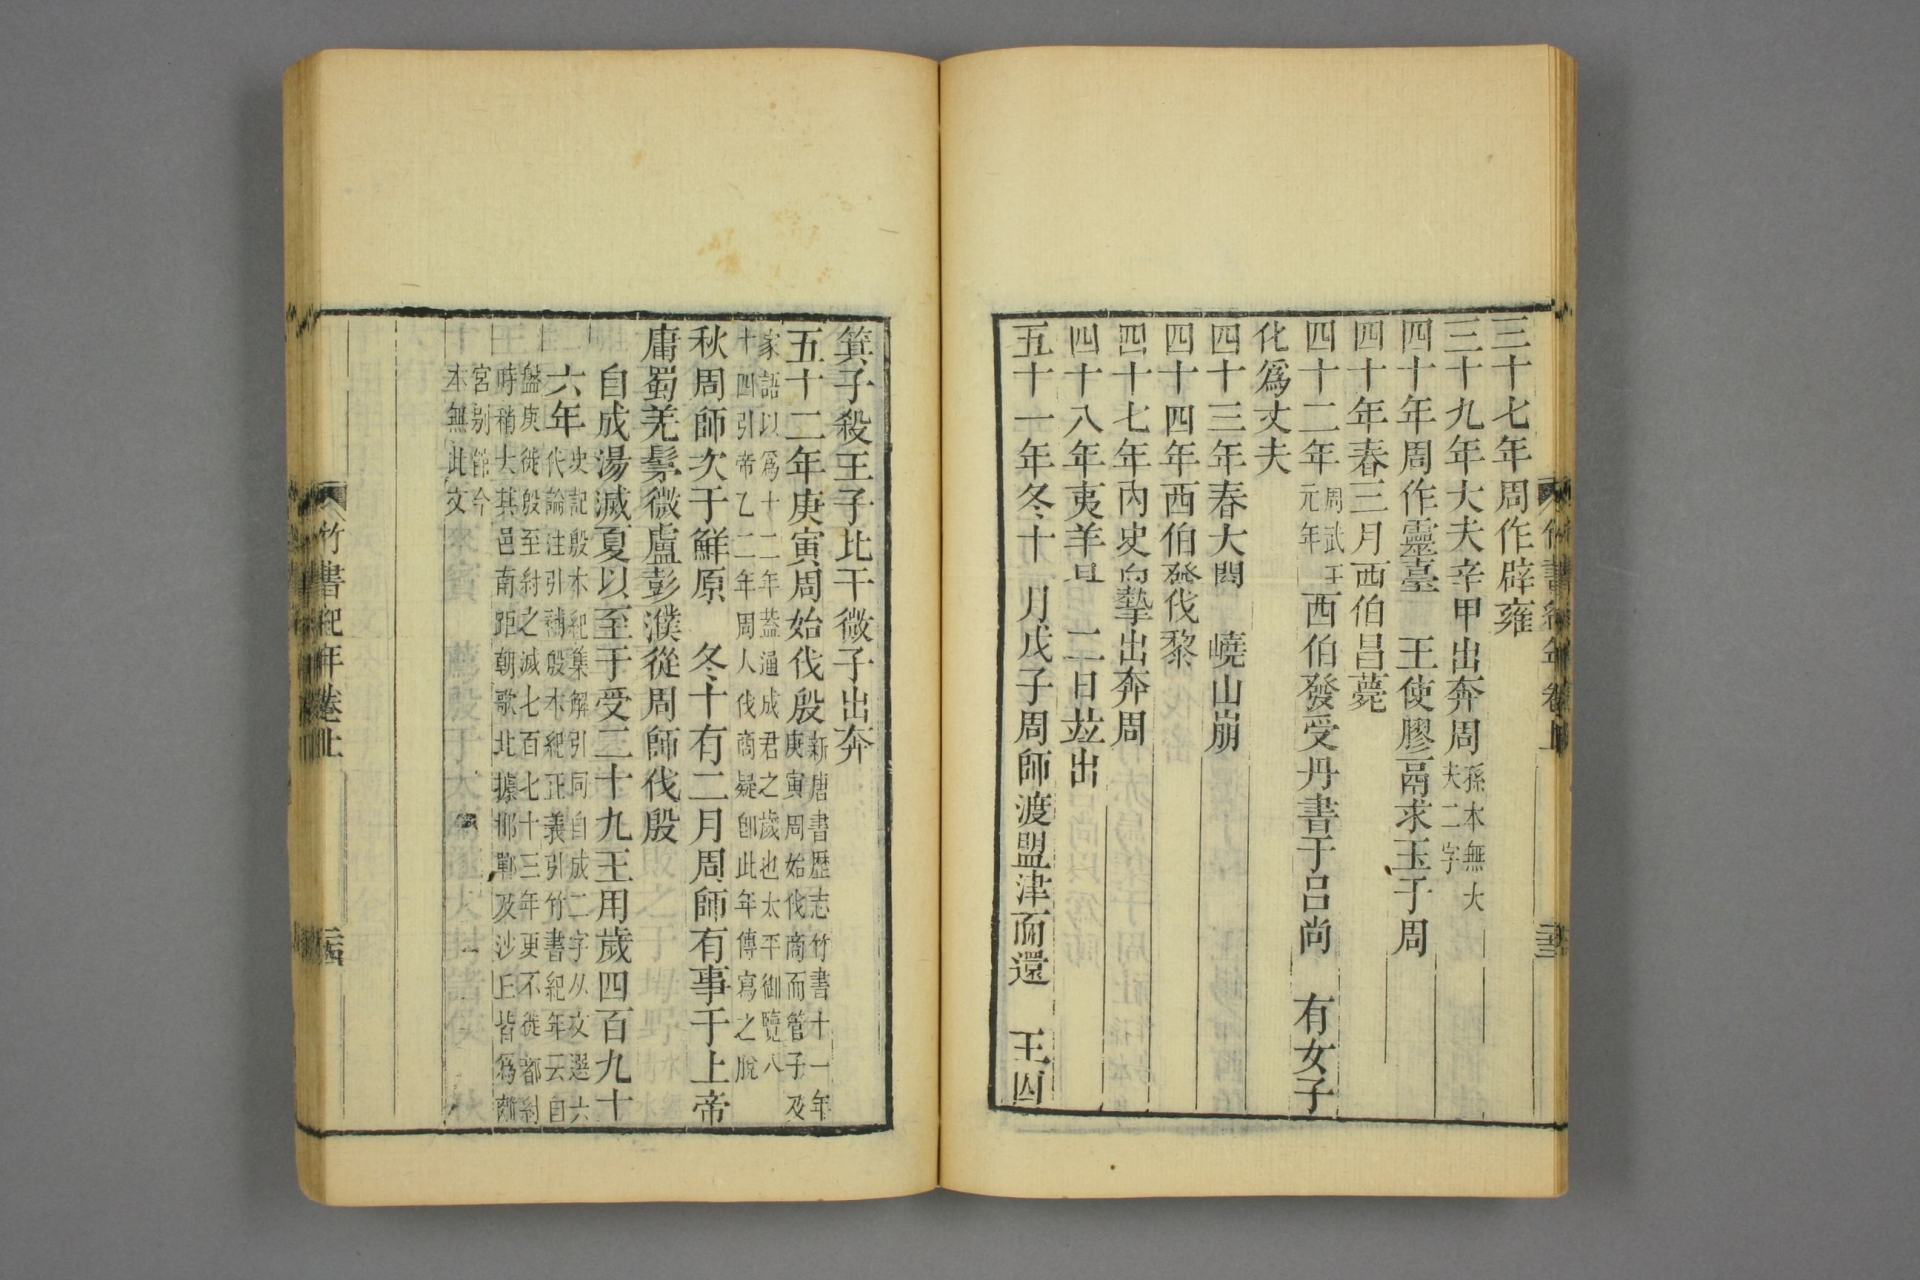 三十七年周作辟雍
三十九年大夫辛甲出奔周孫本無大夫二字
四十年周作靈臺　王使膠鬲求玉于周
四十年春三月西伯昌薨
四十二年周武王元年西伯發受丹書于呂尚　有女子
化爲丈夫
四十三年春大閱　嶢山崩
四十四年西伯發伐黎
四十七年內史向摯出奔周
四十八年夷羊見　二日竝出
五十一年冬十一月戊子周師渡盟津而還　王囚
箕子殺王子比干微子出奔
五十二年庚寅周始伐殷新唐書歷志竹書十一年庚寅周始伐商而管子及
家語以爲十二年蓋通成君之歲也太平御覽八十四引帝乙二年周人伐商疑卽此年傳寫之脫
秋周師次于鮮原　冬十有二月周師有事于上帝
庸蜀羌髳微盧彭濮從周師伐殷
自成湯滅夏以至于受二十九王用歲四百九十
六年史記殷本紀集解引同自成二字从文選六代論注引補殷本紀正義引竹書紀年云自
盤庚徙殷至紂之滅七百七十三年更不徙都紂時稍大其邑南距朝歌北據邯鄲及沙丘皆爲離
宮別館今本無此文
竹書紀年卷上